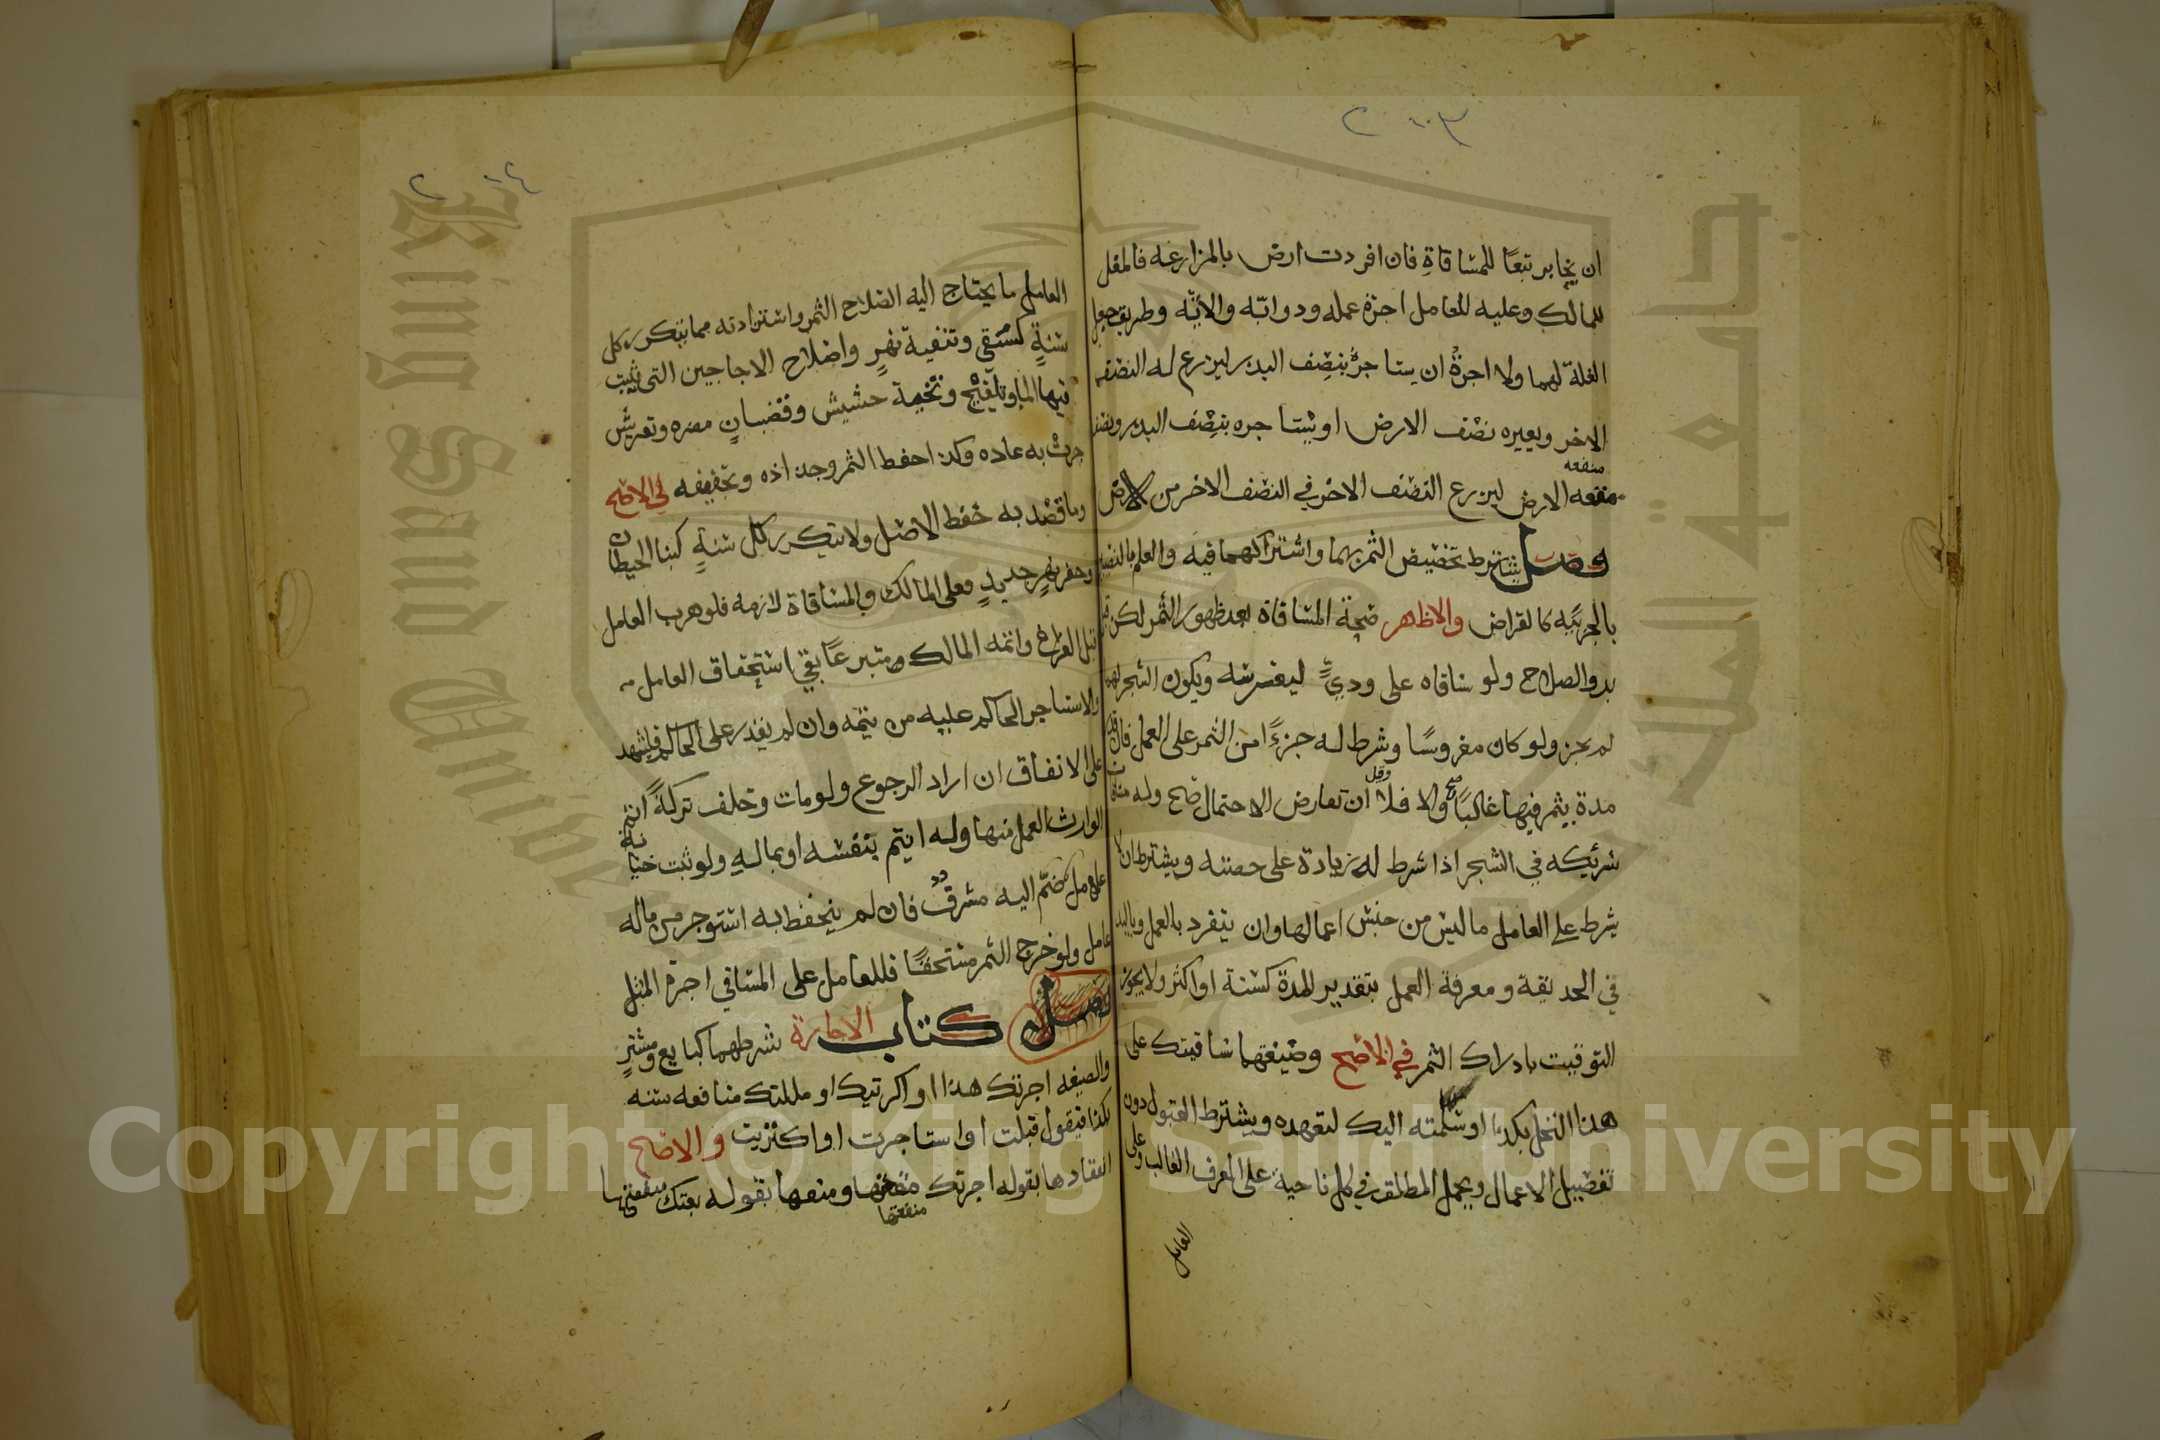 ٢٠٣
ان يخابر تبعًا للمساقاةِ فان افردت ارض بالمزارعه فالمغل
للمالك وعليه للعامل اجرة عمله ودوابّه والاتّه وطريق جعل
الغلة لهما ولا اجرةُ ان يستاجرُ بنِصف البدر ليزرع له النصف
الاخر ويعيره نصف الارض او يستاجره بنِصف البدر ونصف
منفعه
منفعه الارض ليزرع النصف الاخر في النصف الاخر من الارض
فصل يشترط تخصيص الثمر بهما واشتراكهما فيه والعلم بالنصيبين
بالجزئيه كالقراض والاظهر صِحة المساقاة بعد ظهور الثمر لكن قبل
بدو الصلاح ولو ساقاه على وديٍّ ليغرسه ويكون الشجر لهما
لم يجز ولو كان مغروسًا وشرط له جزءًا من الثمر على العمل فان قدر
مدة يثمر فيها غالبًا صح والا فلا وقيل ان تعارض الاحتمال صح وله مساقاة
شريكه في الشجر اذا شرط له زيادة على حصته ويشترط ان لا
يشرط على العامل ما ليس من جنس اعمالها وان ينفرد بالعمل وباليد
في الحديقة ومعرفة العمل بتقدير المدة كسنة او اكثر ولا يجوز
التوقيت بادراك الثمر في الاصح وصيغتها ساقيتك على
هذا النخل بكذا او سلمته اليك لتعهده ويشترط القبول دون
تفصيل الاعمال ويحمل المطلق في كل ناحية على العرف الغالب وعلى
العامل
٢٠٤
العامل ما يحتاج اليه الصلاح الثمر واستزادته مما يتكرر كل
سنةٍ كسقي وتنقية نهرٍ واصلاح الاجاجين التي يثبت
فيها الما وتلقيح وتنحية حشيش وقضبانٍ مضره وتعريش
جرت به عاده وكذا حفظ الثمر وجداده وتجفيفه في الاصح
وما قصد به حفظ الاصل ولا يتكرر كل سنةٍ كبنا الحيطان
وحفر نهرٍ جديدٍ فعلى المالك والمساقاة لازمه فلو هرب العامل
قبل الفراغ واتمه المالك متبرعًا بقي استحقاق العامل
والا استاجر الحاكم عليه من يتمه وان لم يقدر على الحاكم فليشهد
على الانفاق ان اراد الرجوع ولو مات وخلف تركةً اتم
الوارث العمل منها وله ان يتم بنفسه او بماله ولو ثبت خيانة
عامل ضمّ اليه مشرفٌ فان لم يتحفظ به استوجر من ماله
عامل ولو خرج الثمر مستحقًا فللعامل على المساقي اجرة المثل
كتاب الاجارة شرطهما كبايع ومشترٍ
والصيغه اجرتك هذا او اكريتك او مللتك منافعه سنه
بكذا فيقول قبلت او استاجرت او اكتريت والاصح
انعقادها بقوله اجرتك منفعتها ومنعها بقوله بعتك منفعتها
منفعتها
Copyright © King Saud University
King Saud University
جامعة الملك